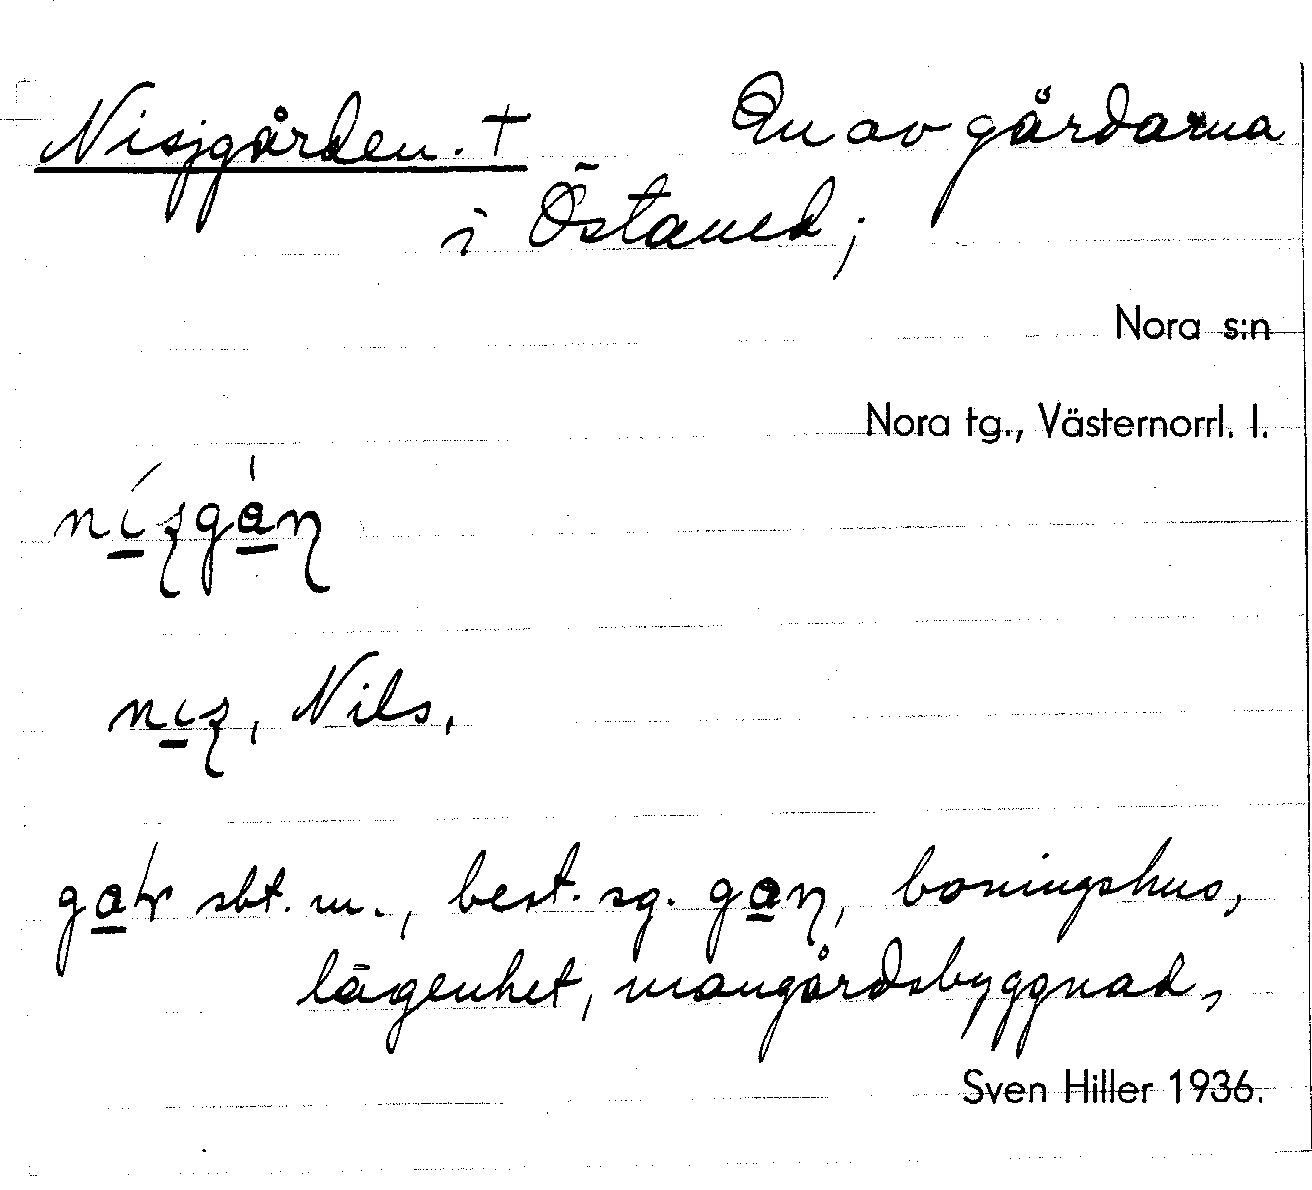 Nisjgården. † En av gårdarna
i Östaned;
Nora s:n
Nora tg., Västernorrl. l.
nísgán
nis, Nils,
sbt. m., best. sg. gan, boningshus,
lägenhet, mangårdsbyggnad,
Sven Hiller 1936.